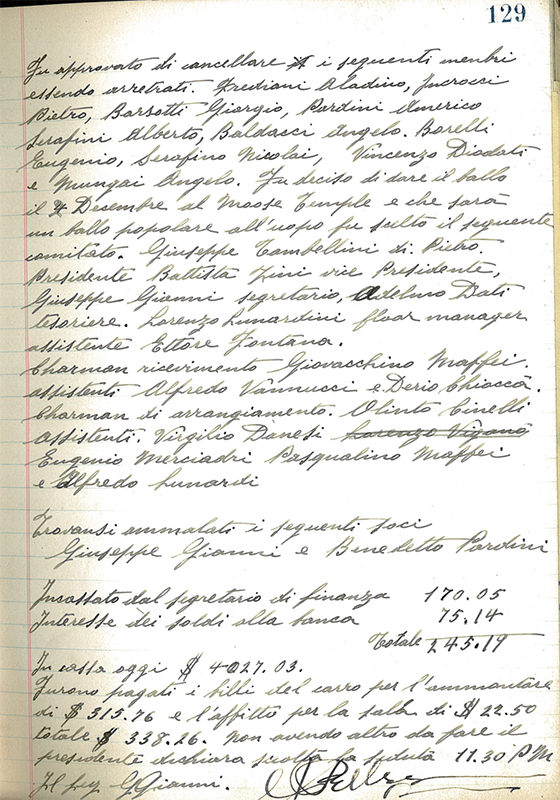 129
Fu approvato di cancellare i seguenti menbri
essendo arretrati. Frediani Aladino, Incrocci
Pietro, Barsotti Giorgio, Pardini Americo
Serafini Alberto, Baldacci Angelo. Borelli
Eugenio, Serafino Nicolai, Vincenzo Diodati
e Mungai Angelo. Fu deciso di dare il ballo
il 4 Decembre al Moose Temple e che sarà
un ballo popolare all'uopo fu scelto il seguente
comitato. Giuseppe Tambellini di Pietro.
Presidente Battista Zini vice Presidente,
Giuseppe Gianni segretario, Adelmo Dati
tesoriere. Lorenzo Lunardini floar manager
assistente Ettore Fontana.
Charman ricevimento Giovacchino Maffei
assistenti Alfredo Vannucci e Derio Chiocca.
Charman di arrangiamento. Olinto Cinelli
Assistenti. Virgilio Danesi Lorenzo Viganò
Eugenio Merciadri Pasqualino Maffei
e Alfredo Lunardi
Trovansi ammalati i seguenti soci
Giuseppe Gianni e Benedetto Pardini
Incassato dal segretario di finanza 170.05
Interesse dei soldi alla banca 75.14
Totale 245.19
In cassa oggi $ 4027.03.
Furono pagati i billi del carro per l'ammontare
di $ 315.76 e l'affitto per la sala di $ 22.50
totale $ 338.26. Non avendo altro da fare il
presidente dichiara sciolta la seduta 11.30 P M
Il Seg G Gianni.